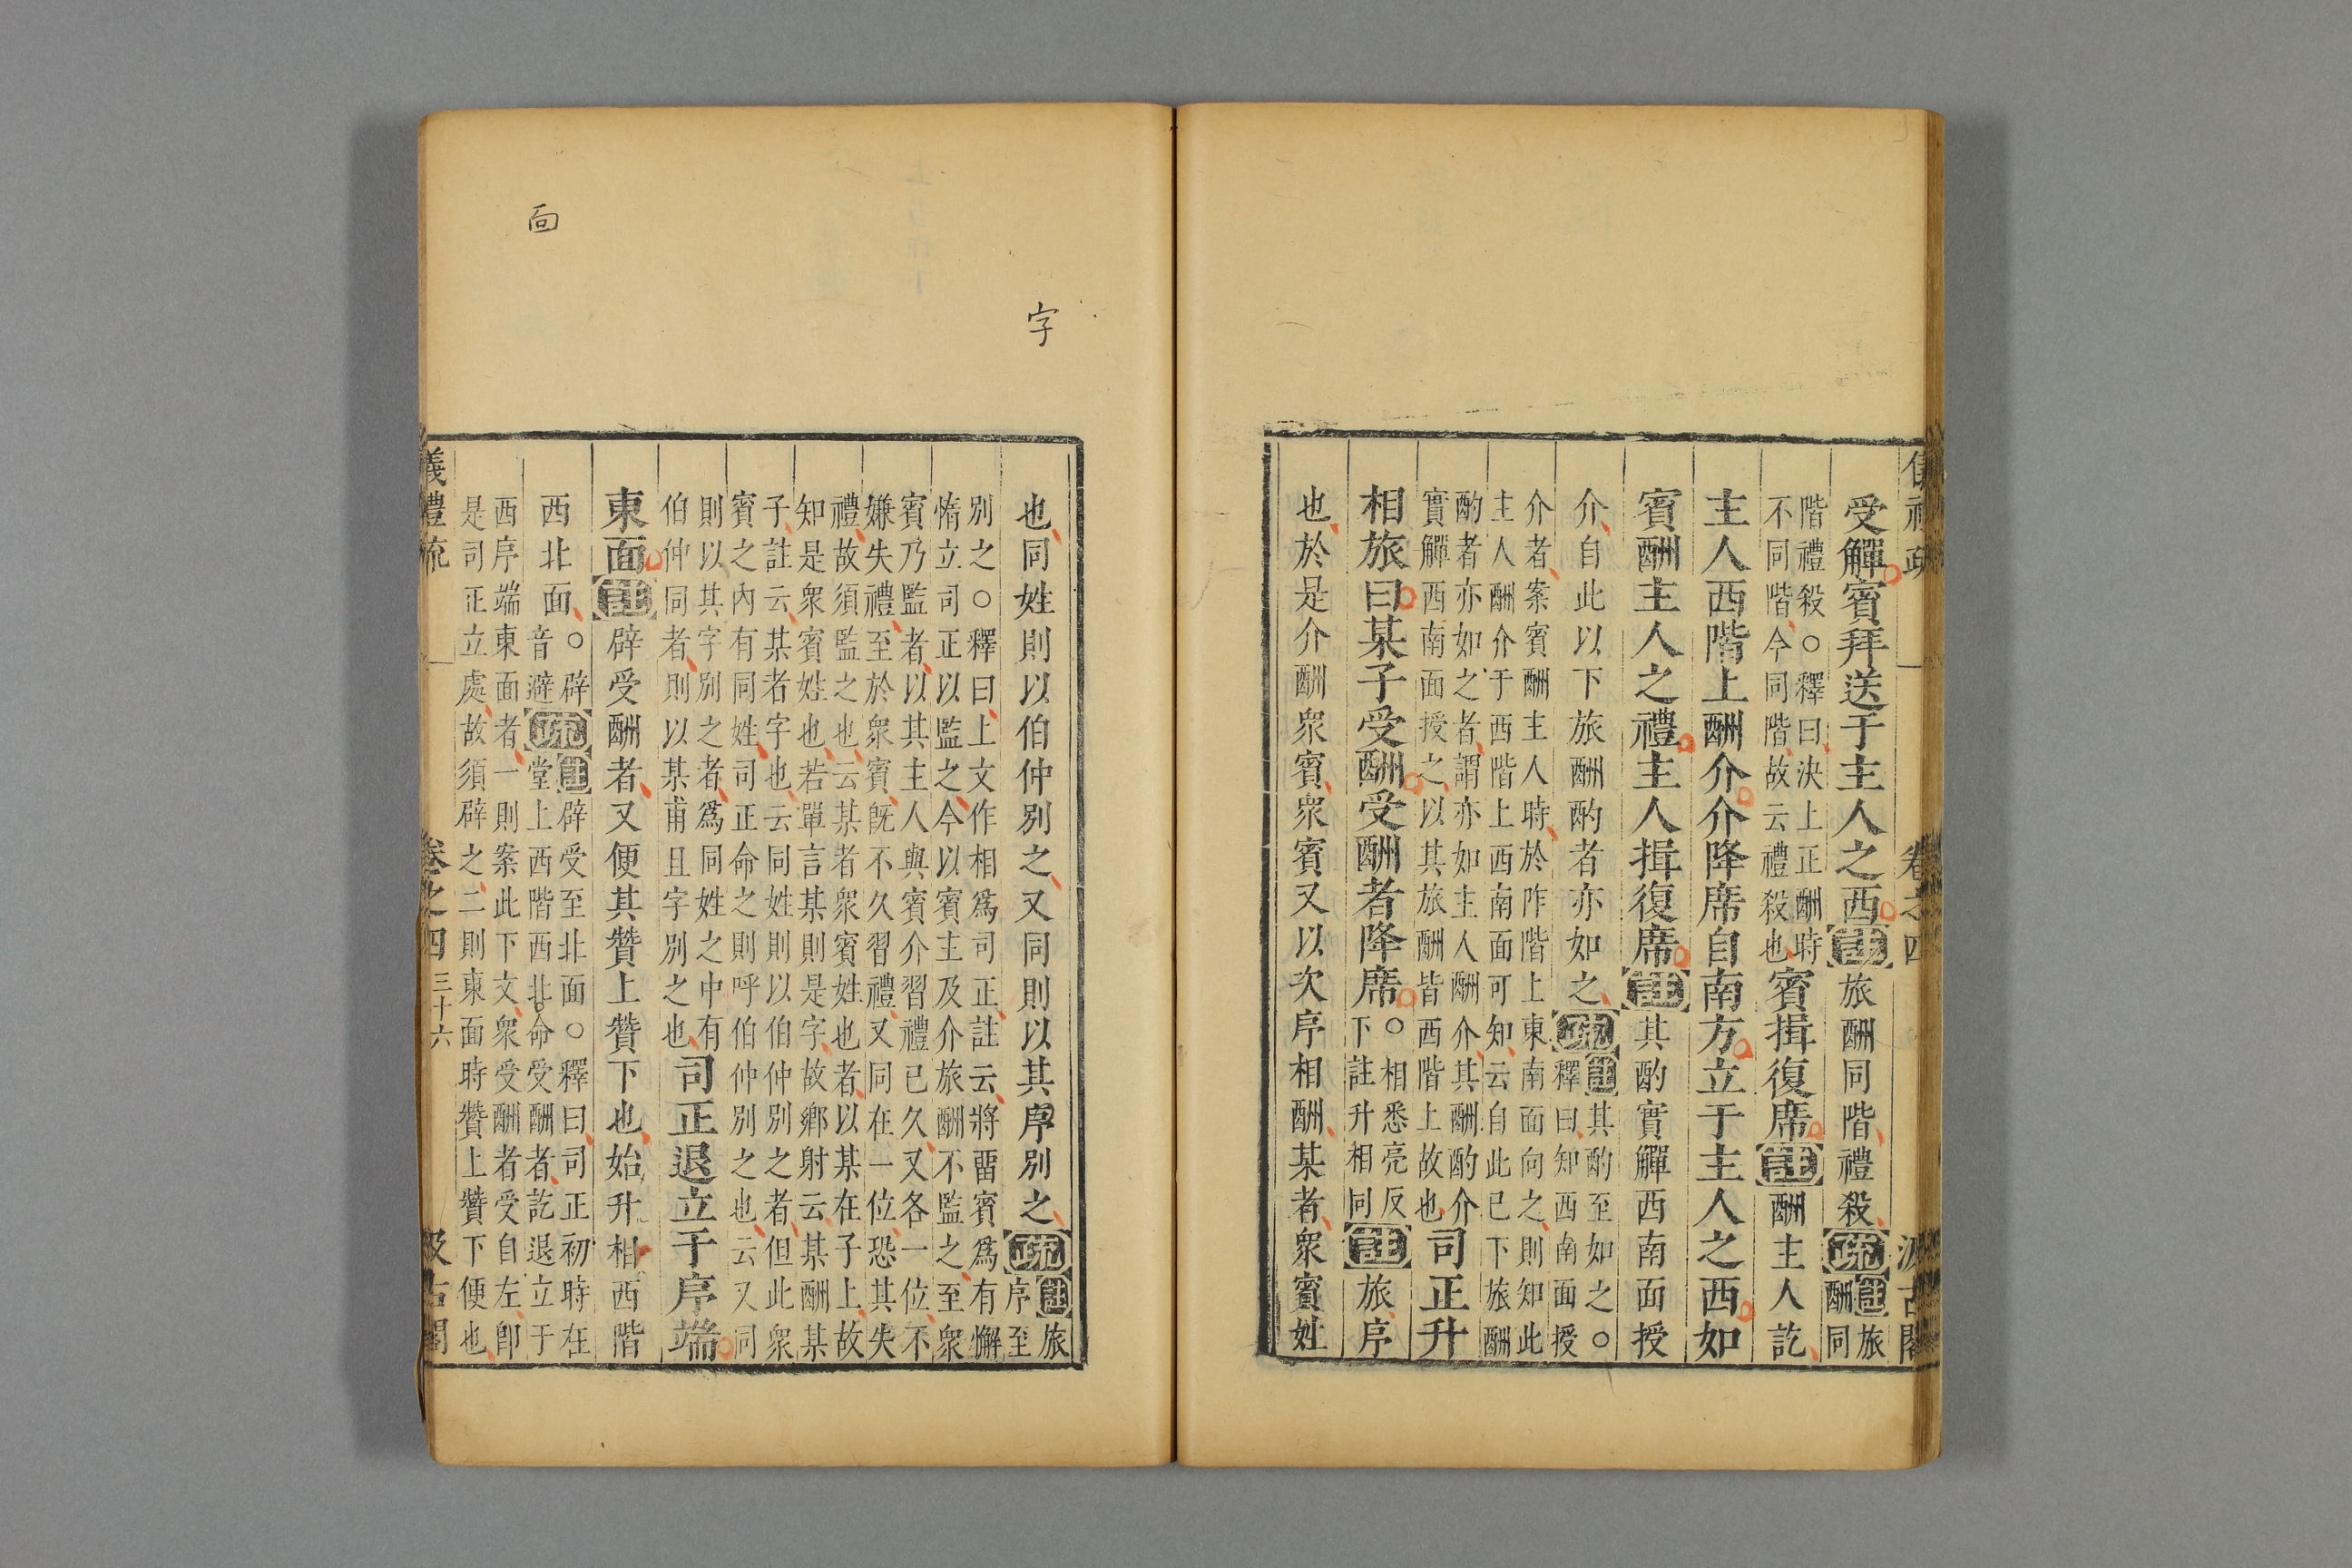 受觶賓拜送于主人之西註旅酬同階禮殺疏註旅酬同
階禮殺○釋曰決上正酬時不同階今同階故云禮殺也賓揖復席註酬主人訖
主人西階上酬介介降席自南方立于主人之西如
賓酬主人之禮主人揖復席註其酌實觶西南面授
介自此以下旅酬酌者亦如之疏註其酌至如之○釋曰知西南面授
介者案賓酬主人時於阼階上東南面向之則知此
主人酬介于西階上西南面可知云自此已下旅酬
酌者亦如之者謂亦如主人酬介其酬酌介
實觶西南面授之以其旅酬皆西階上故也司正升
相旅曰某子受酬受酬者降席○相悉亮反下註升相同註旅序
也於是介酬衆賓衆賓又以次序相酬某者衆賓姓
也同姓則以伯仲別之又同則以其序別之疏註旅序至
別之○釋曰上文作相爲司正註云將畱賓爲有懈
惰立司正以監之今以賓主及介旅酬不監之至衆
賓乃監者以其主人與賓介習禮已久又各一位不
嫌失禮至於衆賓旣不久習禮又同在一位恐其失
禮故須監之也云某者衆賓姓也者以某在子上故
知是衆賓姓也若單言某則是字故鄉射云某酬某
子註云某者字也云同姓則以伯仲別之者但此衆
賓之內有同姓司正命之則呼伯仲別之也云又同
則以其字別之者爲同姓之中有
伯仲同者則以某甫且字別之也司正退立于序端
東面註辟受酬者又便其贊上贊下也始升相西階
西北面○辟音避疏註辟受至北面○釋曰司正初時在
堂上西階西北命受酬者訖退立于
西序端東面者一則案此下文衆受酬者受自左卽
是司正立處故須辟之二則東面時贊上贊下便也
儀禮疏
卷之四
三十六
汲古閣
字
面